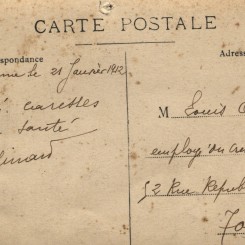 CARTE POSTALE
spondance
le 21 Janvier 1912
caresses
santé
Adres
M Louis
employé au Cre
52 Rue Républ